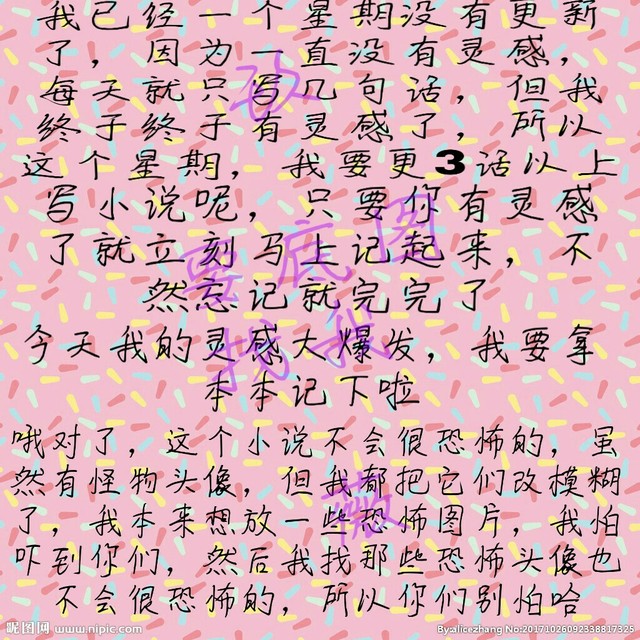 我已经一个星期没有更新
了，因为一直没有灵感，
每天就只写几句话，但我
终于终于有灵感了，所以
这个星期，我要更3话以上
写小说呢，只要你有灵感
了就立刻马上记起来，不
然忘记就完完了
今天我的灵感大爆发，我要拿
本本记下啦
哦对了，这个小说不会很恐怖的，虽
然有怪物头像，但我都把它们改模糊
了，我本来想放一些恐怖图片，我怕
吓到你们，然后我找那些恐怖头像也
不会很恐怖的，所以你们别怕哈
要底图
找我
薇
昵图网 www.nipic.com
By:alicezhang No:20171026092338817325